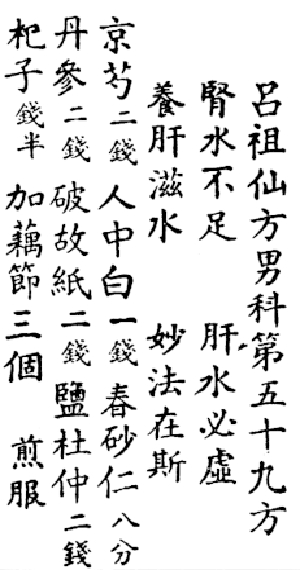 呂祖仙方男科第五十九方
腎水不足 肝水必虛
養肝滋水 妙法在斯
京芍二錢 人中白一錢 春砂仁八分
丹參二錢 破故紙二錢 鹽杜仲二錢
杞子錢半 加藕節三個 煎服